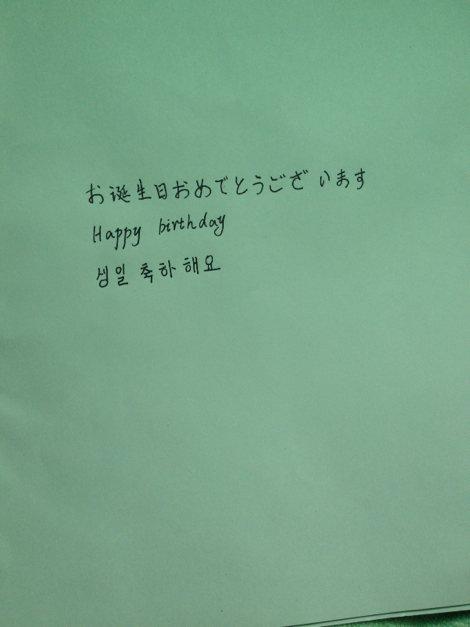 お誕生日おめでとうございます
Happy birthday
생일 축하해요